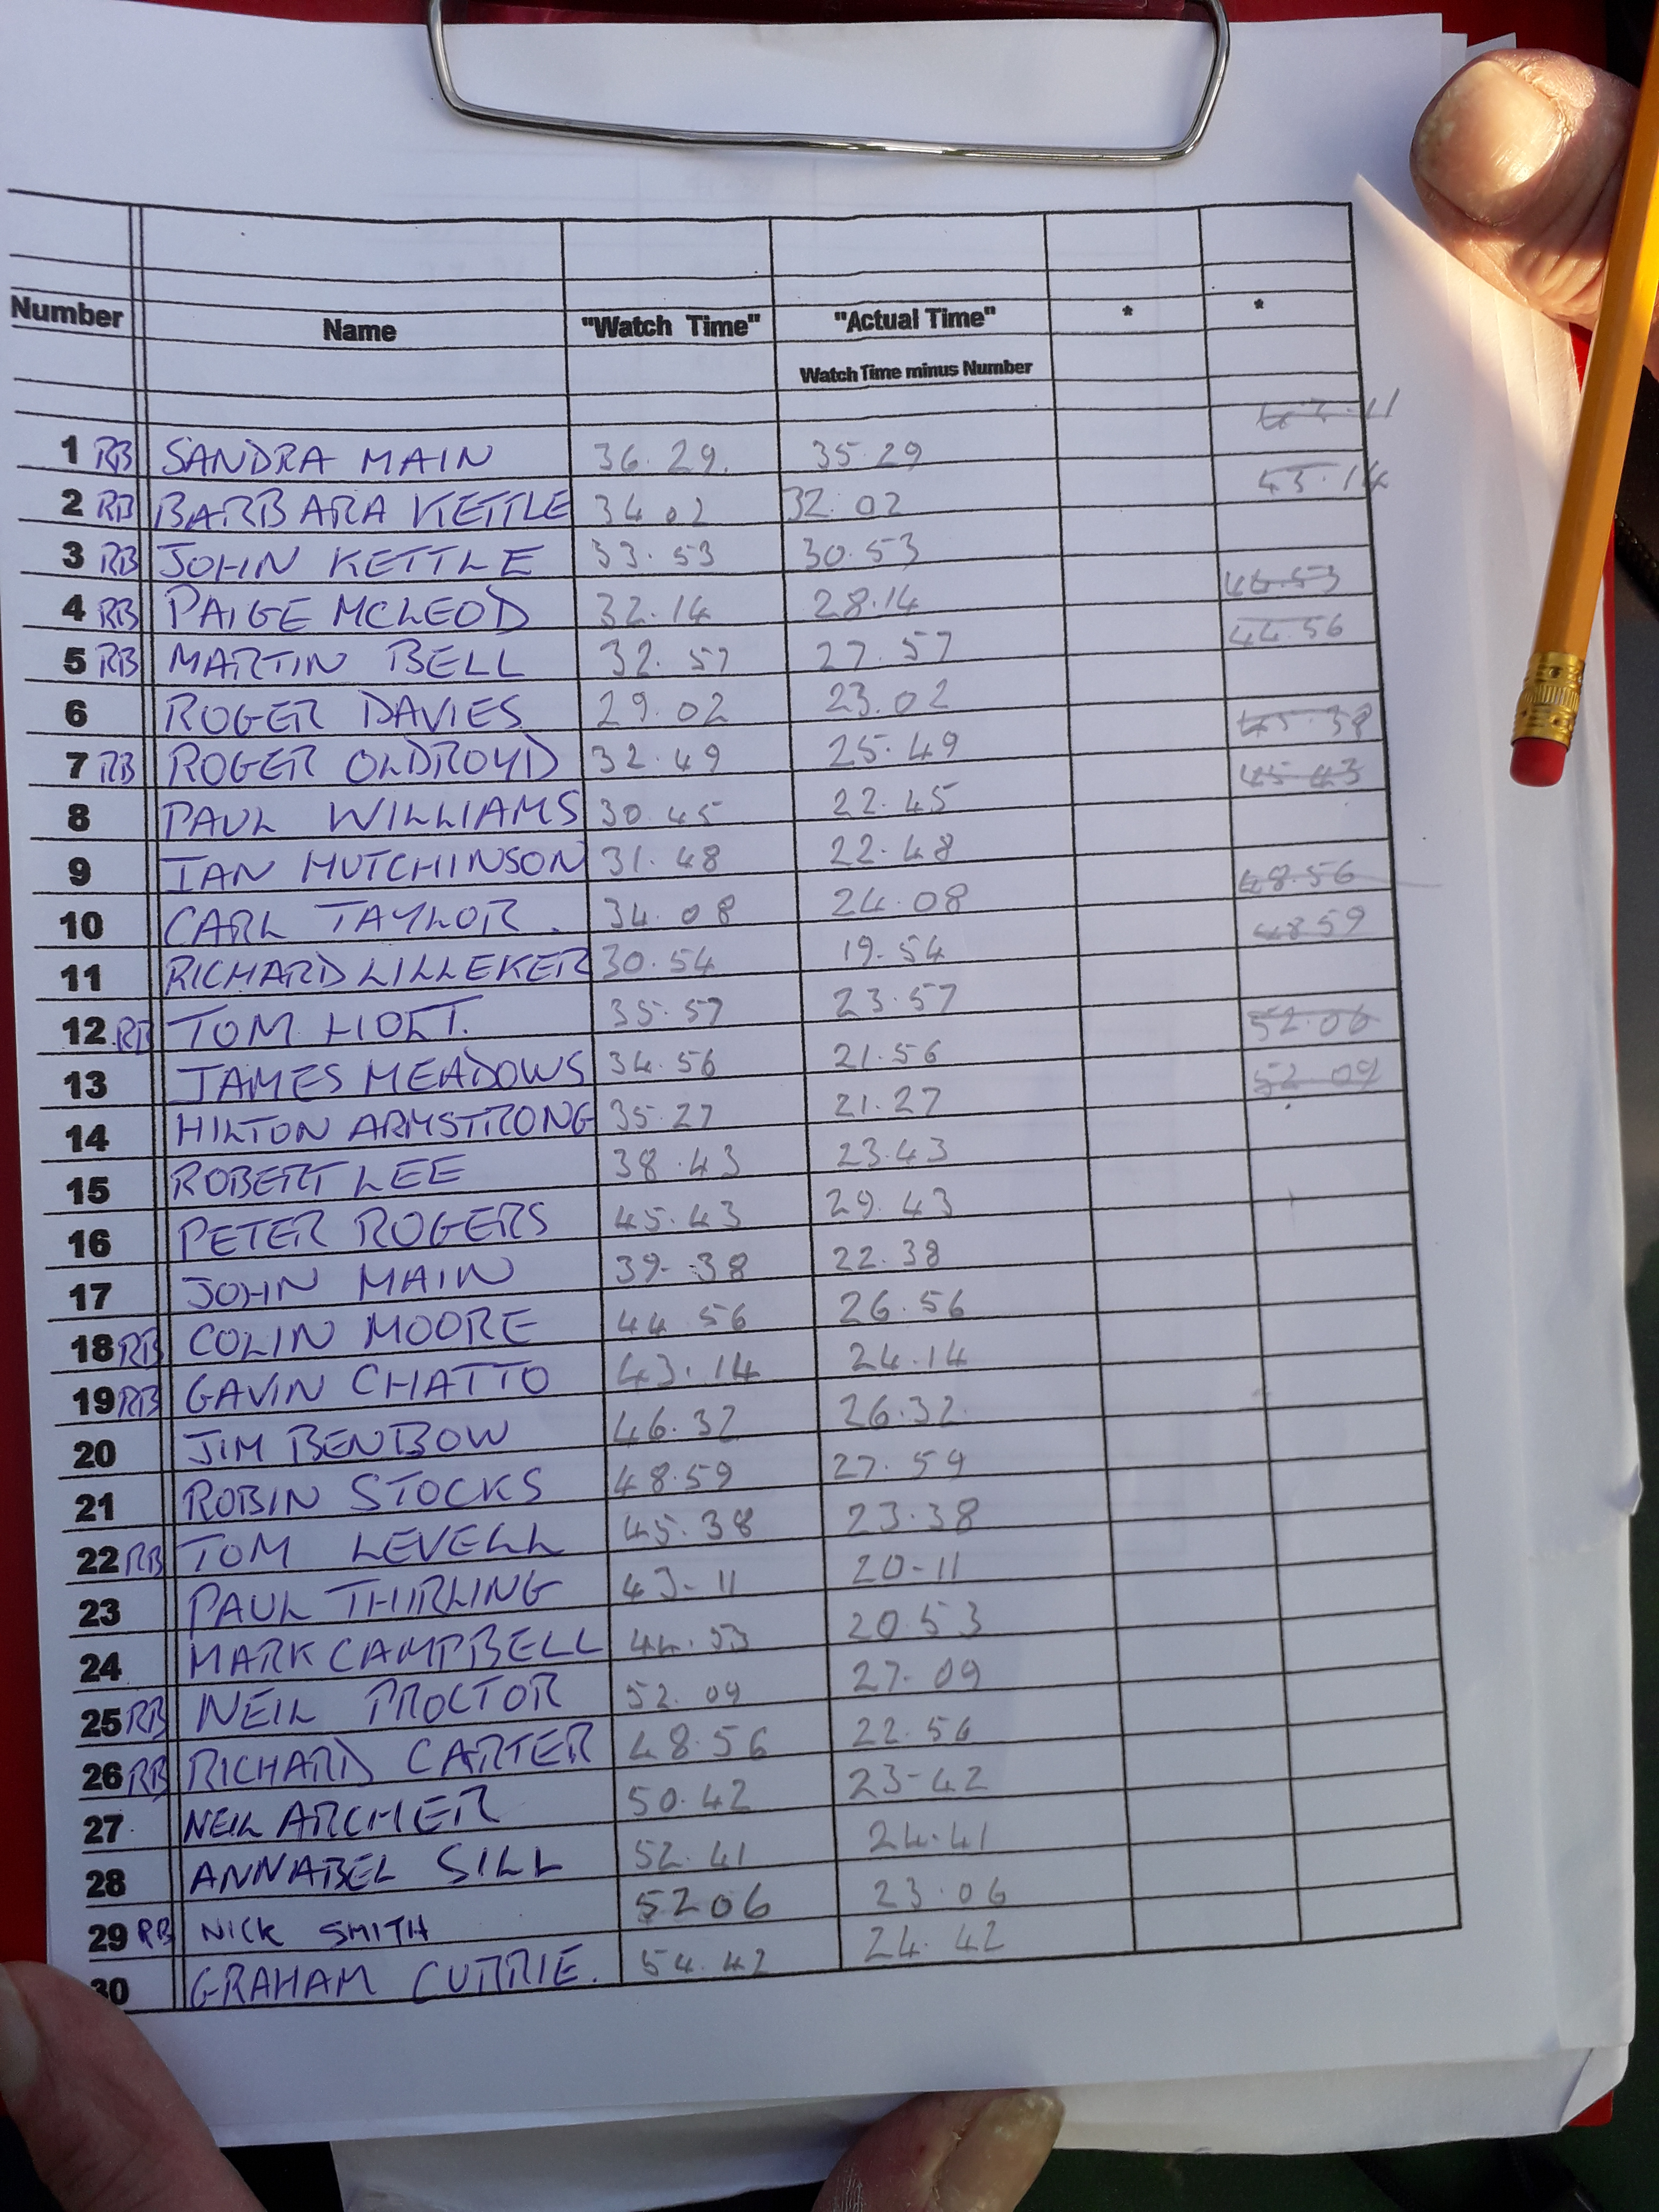 Number Name "Watch Time" "Actual Time" * *
Watch Time minus Number
1 RB SANDRA MAIN 36.29. 35.29 43.11
2 RB BARBARA KETTLE 34.02 32.02 43.14
3 RB JOHN KETTLE 33.53 30.53
4 RB PAIGE MCLEOD 32.14 28.14 44.53
5 RB MARTIN BELL 32.57 27.57 44.56
6 ROGER DAVIES 29.02 23.02
7 RB ROGER OLDROYD 32.49 25.49 45.38
8 PAUL WILLIAMS 30.45 22.45 45.43
9 IAN HUTCHINSON 31.48 22.48
10 CARL TAYLOR. 34.08 24.08 48.56
11 RICHARD LILLEKER 30.54 19.54 48 59
12 RB TOM HOLT. 35.57 23.57
13 JAMES MEADOWS 34.56 21.56 52.06
14 HILTON ARMSTRONG 35.27 21.27 52 09
15 ROBERT LEE 38.43 23.43
16 PETER ROGERS 45.43 29.43
17 JOHN MAIN 39-38 22.38
18 RB COLIN MOORE 44.56 26.56
19 RB GAVIN CHATTO 43.14 24.14
20 JIM BENBOW 46.32 26.32.
21 ROBIN STOCKS 48.59 27.59
22 RB TOM LEVELL 45.38 23.38
23 PAUL THIRLING 43-11 20-11
24 MARK CAMPBELL 44.53 20.53
25 RB NEIL PROCTOR 52.09 27-09
26 RB RICHARD CARTER 48.56 22.56
27 NEIL ARCHER 50.42 23-42
28 ANNABEL SILL 52.41 24.41
29 RB NICK SMITH 5206 23.06
30 GRAHAM CURRIE. 54.42 24.42